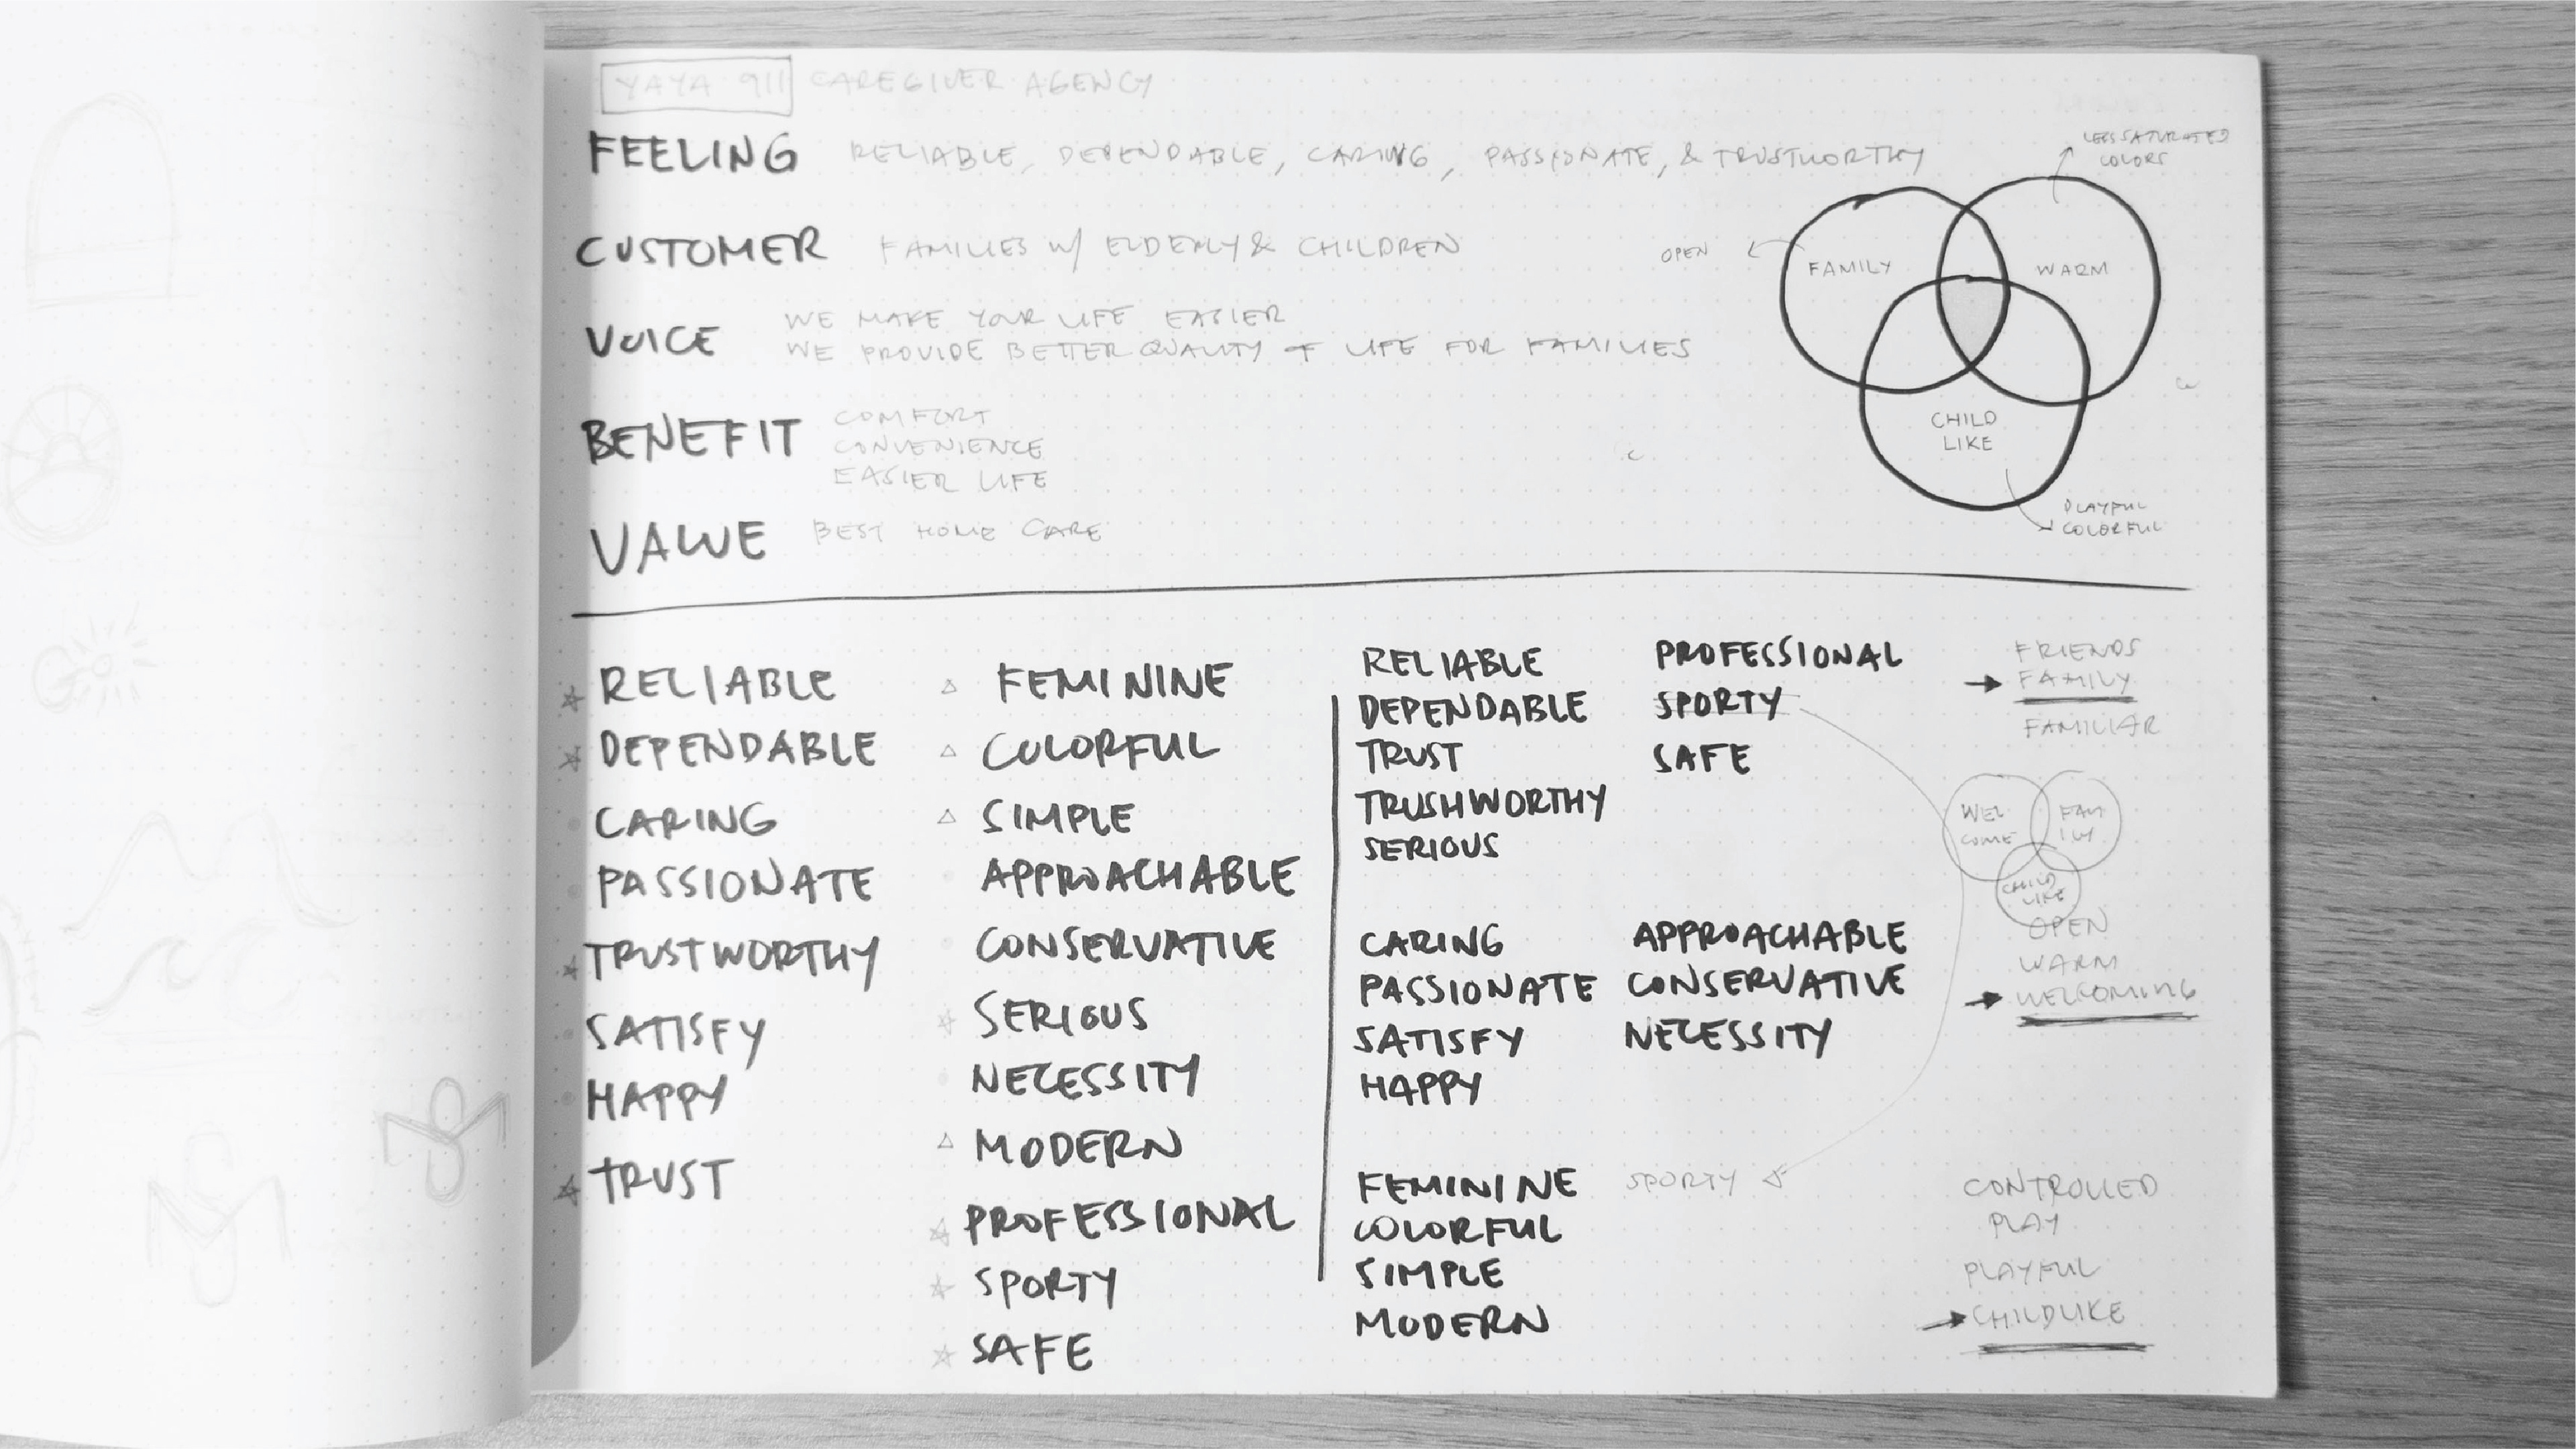 YAYA 911 CAREGIVER AGENCY
FEELING RELIABLE, DEPENDABLE, CARING, PASSIONATE, & TRUSTWORTHY
CUSTOMER FAMILIES W/ ELDERLY & CHILDREN
VOICE WE MAKE YOUR LIFE EASIER
WE PROVIDE BETTER QUALITY OF LIFE FOR FAMILIES
BENEFIT COMFORT
CONVENIENCE
EASIER LIFE
VALUE BEST HOME CARE
LESS SATURATED
COLORS
OPEN
FAMILY
WARM
CHILD
LIKE
PLAYFUL
COLORFUL
RELIABLE
DEPENDABLE
CARING
PASSIONATE
TRUSTWORTHY
SATISFY
HAPPY
TRUST
FEMININE
COLORFUL
SIMPLE
APPROACHABLE
CONSERVATIVE
SERIOUS
NECESSITY
MODERN
PROFESSIONAL
SPORTY
SAFE
RELIABLE
DEPENDABLE
TRUST
TRUSHWORTHY
SERIOUS
PROFESSIONAL
SPORTY
SAFE
FRIENDS
FAMILY
FAMILIAR
WEL
COME
FAM
ILY
CHILD
LIKE
CARING
PASSIONATE
SATISFY
HAPPY
APPROACHABLE
CONSERVATIVE
NECESSITY
OPEN
WARM
WELCOMING
FEMININE
COLORFUL
SIMPLE
MODERN
SPORTY
CONTROLLED
PLAY
PLAYFUL
CHILDLIKE